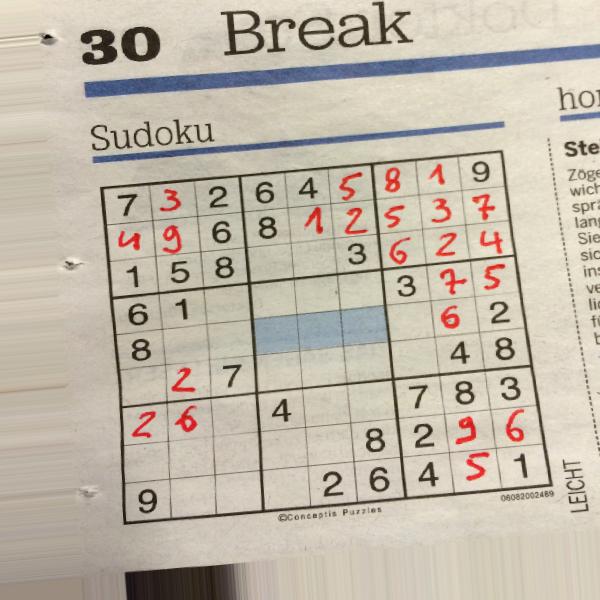 30 Break
Sudoku
7 3 2 6 4 5 8 1 9
4 9 6 8 1 2 5 3 7
1 5 8 3 6 2 4
6 1 3 7 5
8 6 2
2 7 4 8
2 6 4 7 8 3
8 2 9 6
9 2 6 4 5 1
©Conceptis Puzzles
06082002469
LEICHT
hor
Ste
Zöge
wich
spra
lang
Sie
sic
ins
ve
lic